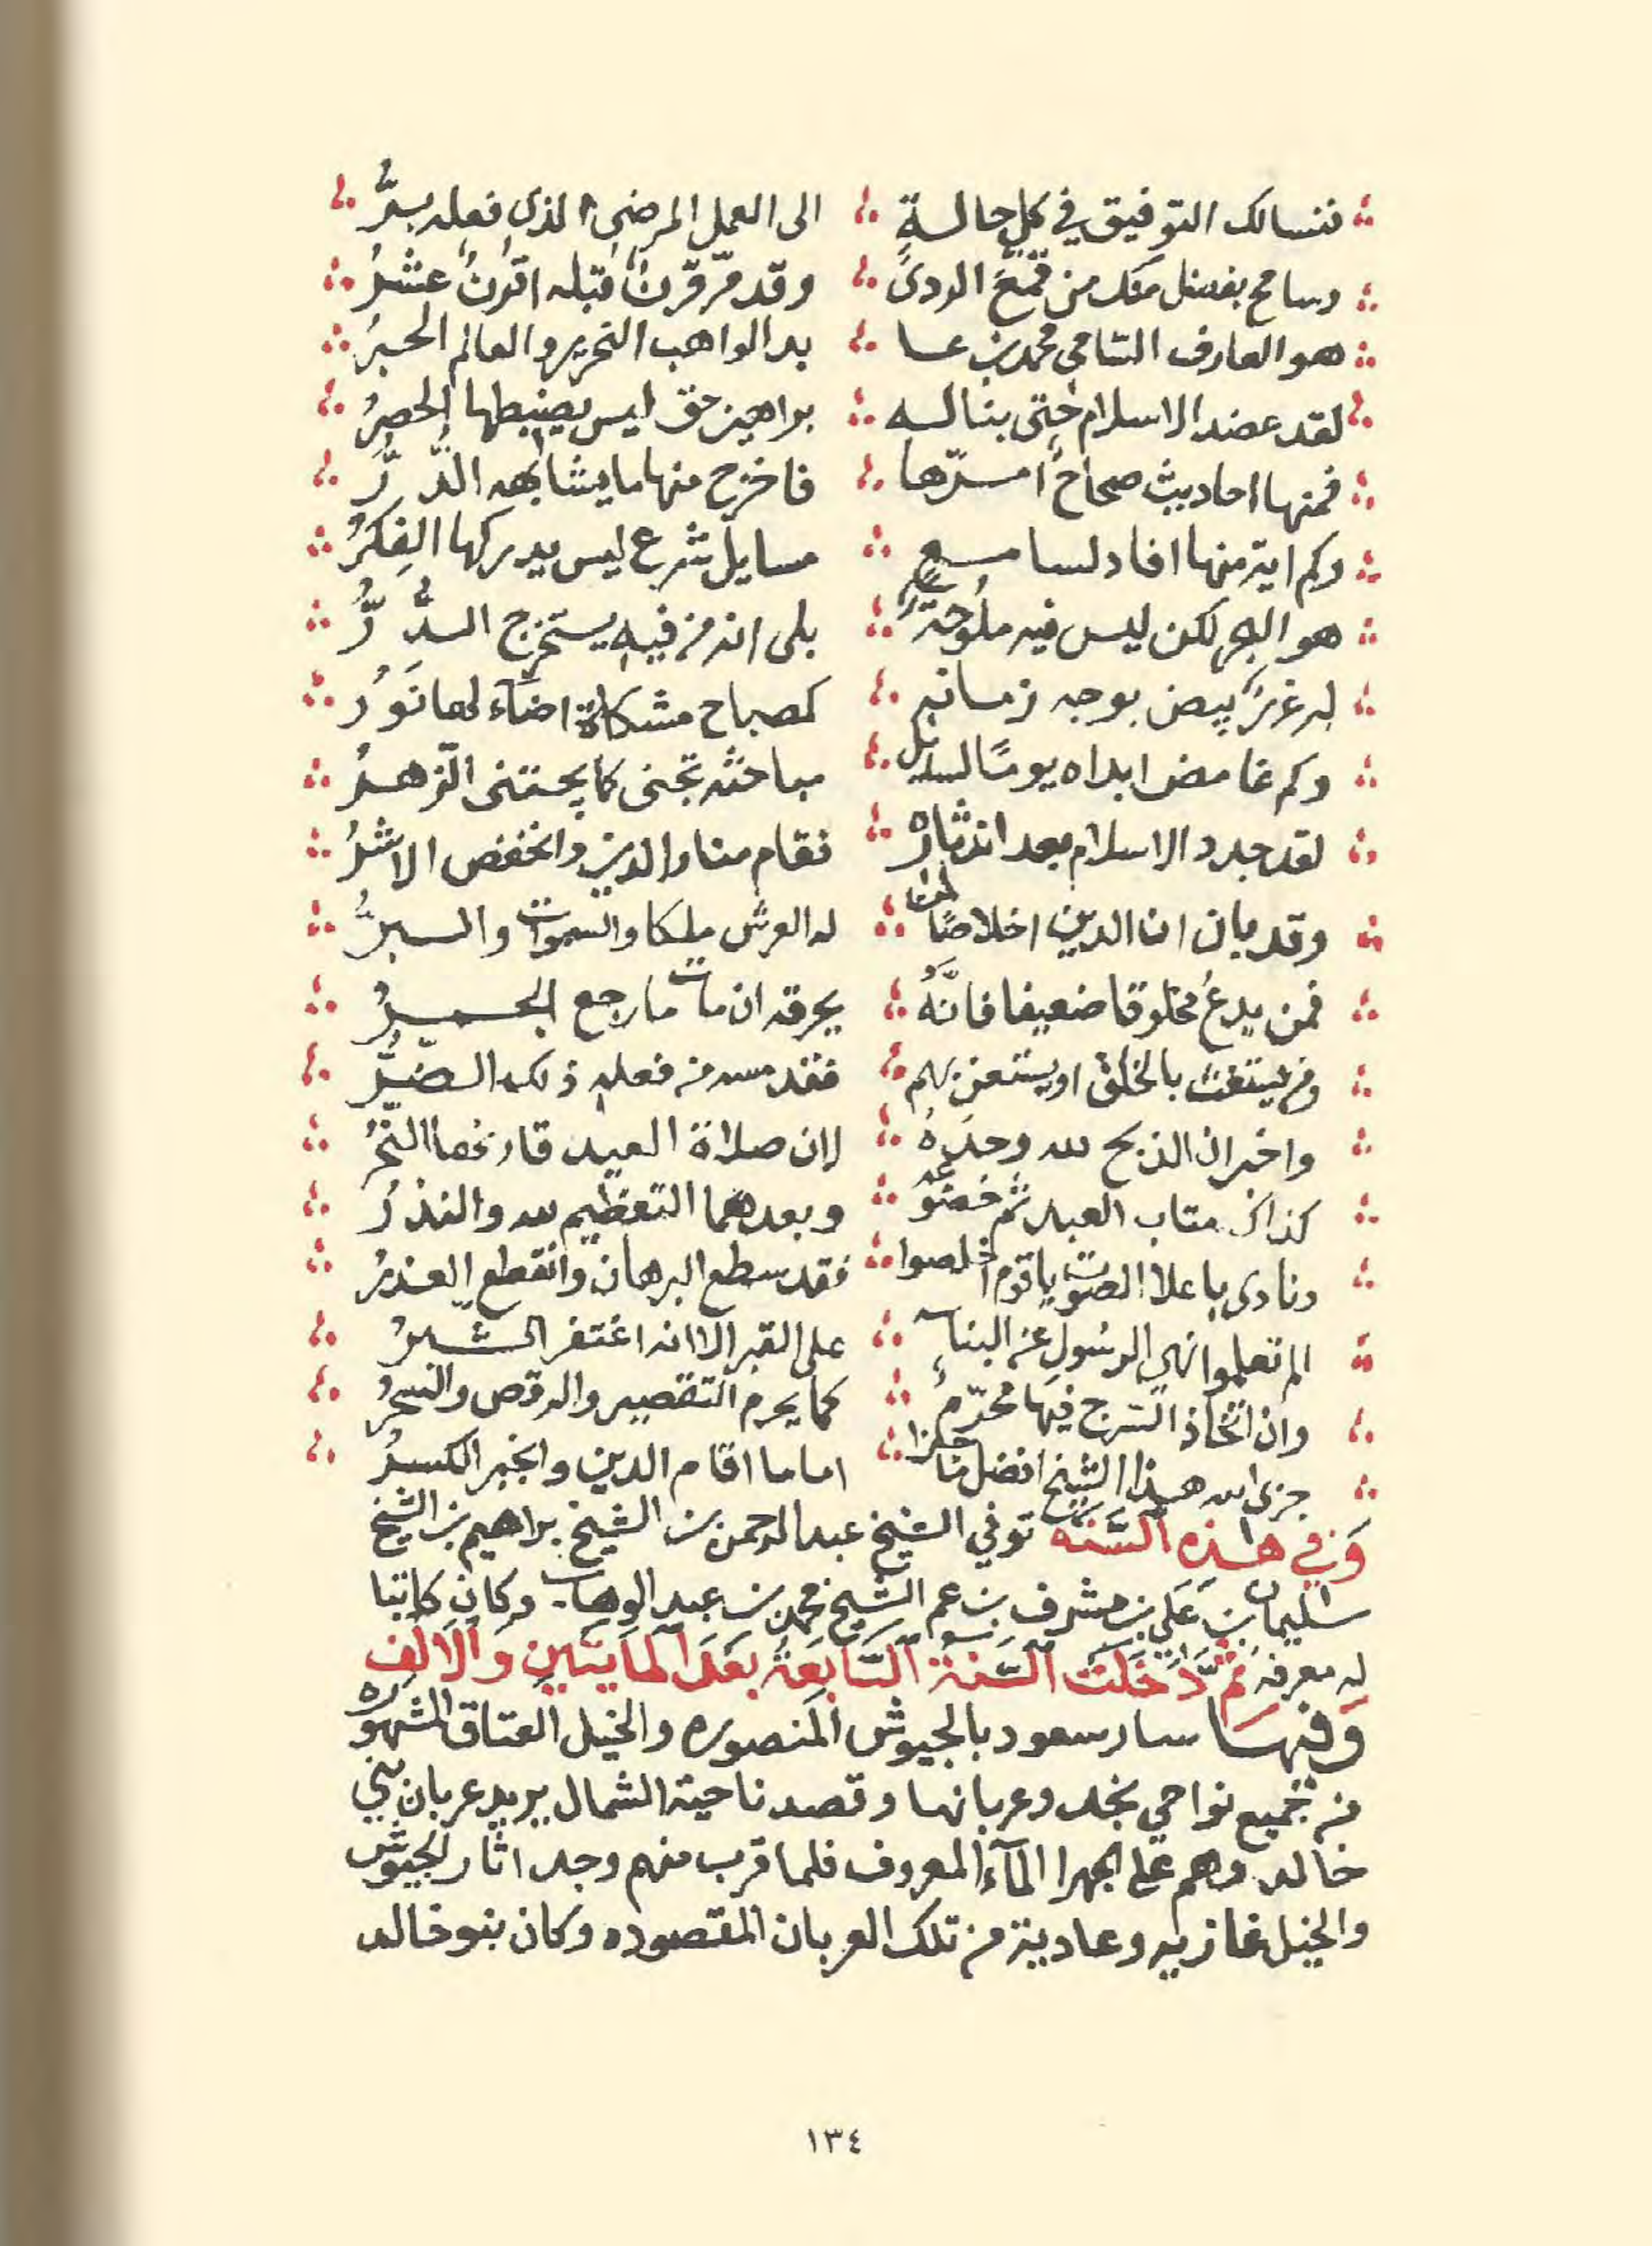 فنسالك التوفيق في كل حالة الى العمل المرضي الذي فعله برُّ
وسامح بفضل منك من قمع الردى وقد مرّ قرنٌ قبله اقرنٌ عشرُ
هو العارف السامي محمد بن عـا بد الواهب النحرير والعالم الحبرُ
لقد عضد الاسلام حتى بنا لـه براهين حق ليس يضبطها الحصرُ
فمنها احاديث صحاحٌ امرّها فاخرج منها ما يشابهه الدُّرُّ
وكم اية منها افاد لسامـع مسايل شرع ليس يدركها الفِكرُ
هو البحر لكن ليس فيه ملوحة بلى انه من فيه يستخرج الدُّرُّ
له غررٌ بيض بوجه زمانه كمصباح مشكاة اضآء لها نَورُ
وكم غامض ابداه يومًا لسايل مباحثه تجنى كما يجتنى الزهرُ
لقد جدد الاسلام بعد اندثاره فقام منار الدين وانخفض الاشرُ
وقد بان ان الدين اخلاصًا لمن له العرش ملكا والسموات والبرُّ
فمن يدعُ مخلوقا ضعيفا فانّهُ يحرقه ان مات ما رجع الجمـرُ
ومن يستغث بالخلق او يستعن بهم فقد مسه من فعله ذلك الضُّرُّ
واخبر ان الذبح لله وحدَهُ لان صلاة العيد قارنها النحرُ
كذاك متاب العبد ثم خضوعه وبعدهما التعظيم لله والنذرُ
ونادى باعلا الصوت ياقوم اخلصوا فقد سطع البرهان وانقطع العذرُ
الم تعلموا نهى الرسُولِ عن البناء على القبر الا انه اغتفر الشبـرُ
وان اتخاذ السّرج فيها محرّم كما يحرم التقصير والرقص والسحرُ
جزى الله هذا الشيخ افضل ما جزا اماما اقام الدين وانجبر الكسـرُ
وَفي هذه السَّنة توفي الشيخ عبد الرحمن بن الشيخ براهيم بن الشيخ
سليمان بن عَلي بن مشرف بن عم الشيخ محمد بن عبد الوهاب وكان كاتبا
له معرفة ثم دَّخَلت السَّنة السَّابعَة بعَد المايتَين وَالالف
وَفيهـا سار سعود بالجيوش المنصوره والخيل العتاق المشهوره
من جميع نواحي نجد وعربانها وقصد ناحية الشمال يريد عربان بني
خالد وهم على الجهرا المآء المعروف فلما قرب منهم وجد اثار الجيوش
والخيل غازيه وعادية من تلك العربان المقصوده وكان بنو خالد
١٣٤